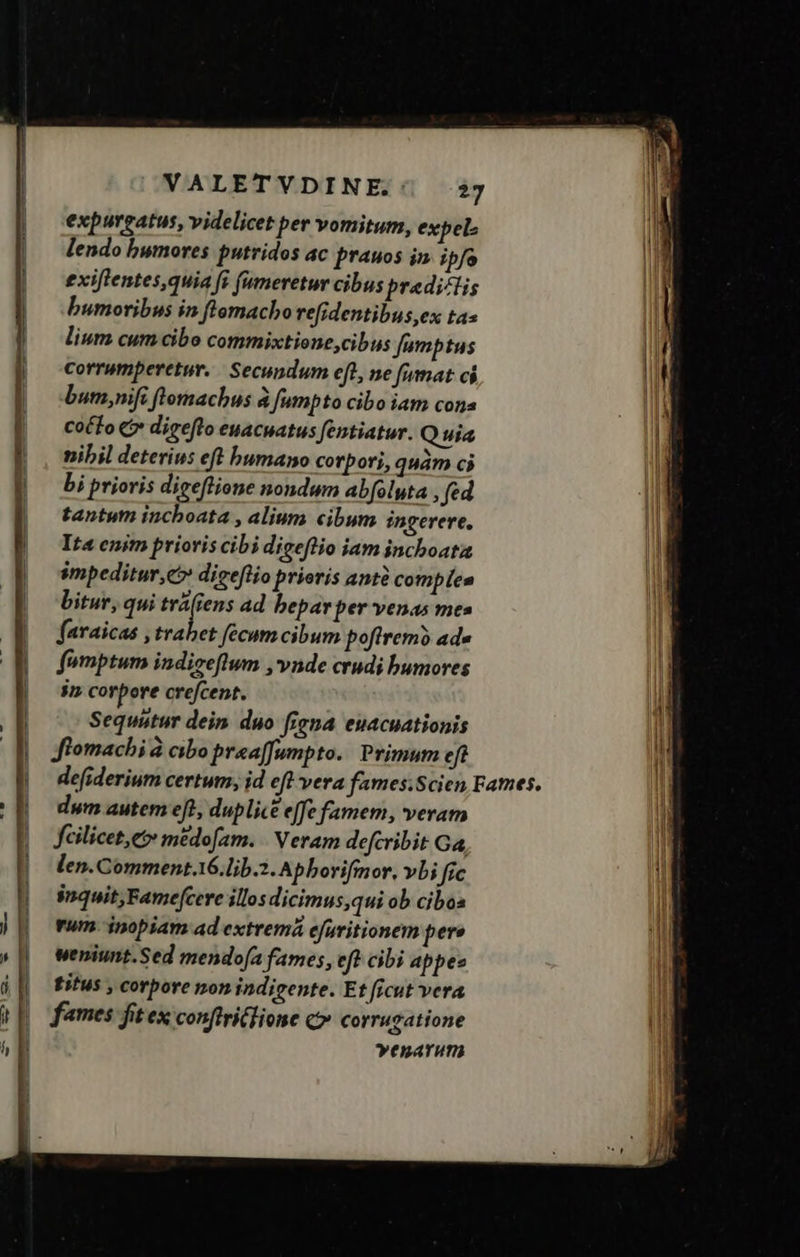 VALETVDINE. 27
expurgatus, videlicet per vomitum, expel-
lendo humores putridos ac prauos in ipſo
exiſtentes,quia ſi ſumeretur cibus prædictis
humoribus in ſtomacho reſidentibus,ex ta-
lium cum cibo commixtione,cibus ſumptus
corrumperetur. Secundum eſt, ne ſumat ci
bum,niſi ſtomachus à ſumpto cibo iam con-
cocto & digeſto euacuatus ſentiatur. Quia
nihil deterius eſt humano corpori, quàm ci
bi prioris digeſtione nondum abſoluta , ſed
tantum inchoata , alium cibum ingerere.
Ita enim prioris cibi digeſtio iam inchoata
impeditur,& digeſtio prioris antè comple-
bitur, qui trāſiens ad hepar per venas me-
ſaraicas , trahet ſecum cibum poſtremò ad-
ſumptum indigeſtum , vnde crudi humores
in corpore creſcent.
Sequūtur dein duo ſigna euacuationis
ſtomachi à cibo præaſſumpto. Primum eſt
deſiderium certum, id eſt vera fames.Scien Fames.
dum autem eſt, duplicē eſſe famem, veram
ſcilicet,& mēdoſam. Veram deſcribit Ga,
len.Comment.16.lib.2. Aphoriſmor. vbi ſic
inquit,Fameſcere illos dicimus,qui ob cibo-
rum inopiam ad extremā eſuritionem per-
ueniunt.Sed mendoſa fames, eſt cibi appe-
titus , corpore non indigente. Et ſicut vera
fames fit ex conſtrictione & corrugatione
venarum